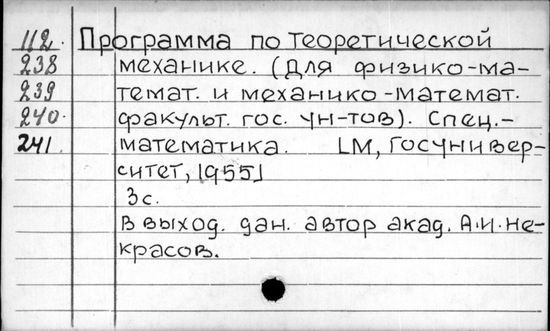 112. Программа по теоретической
238 механике. (Для физико-ма-
239 темат. и механико-математ.
240. факульт. гос. ун-тов). Спец.-
241. математика. [М, Госунивер-
ситет, 1955]
3с.
В выход. дан. автор акад. А.И. Не-
красов.